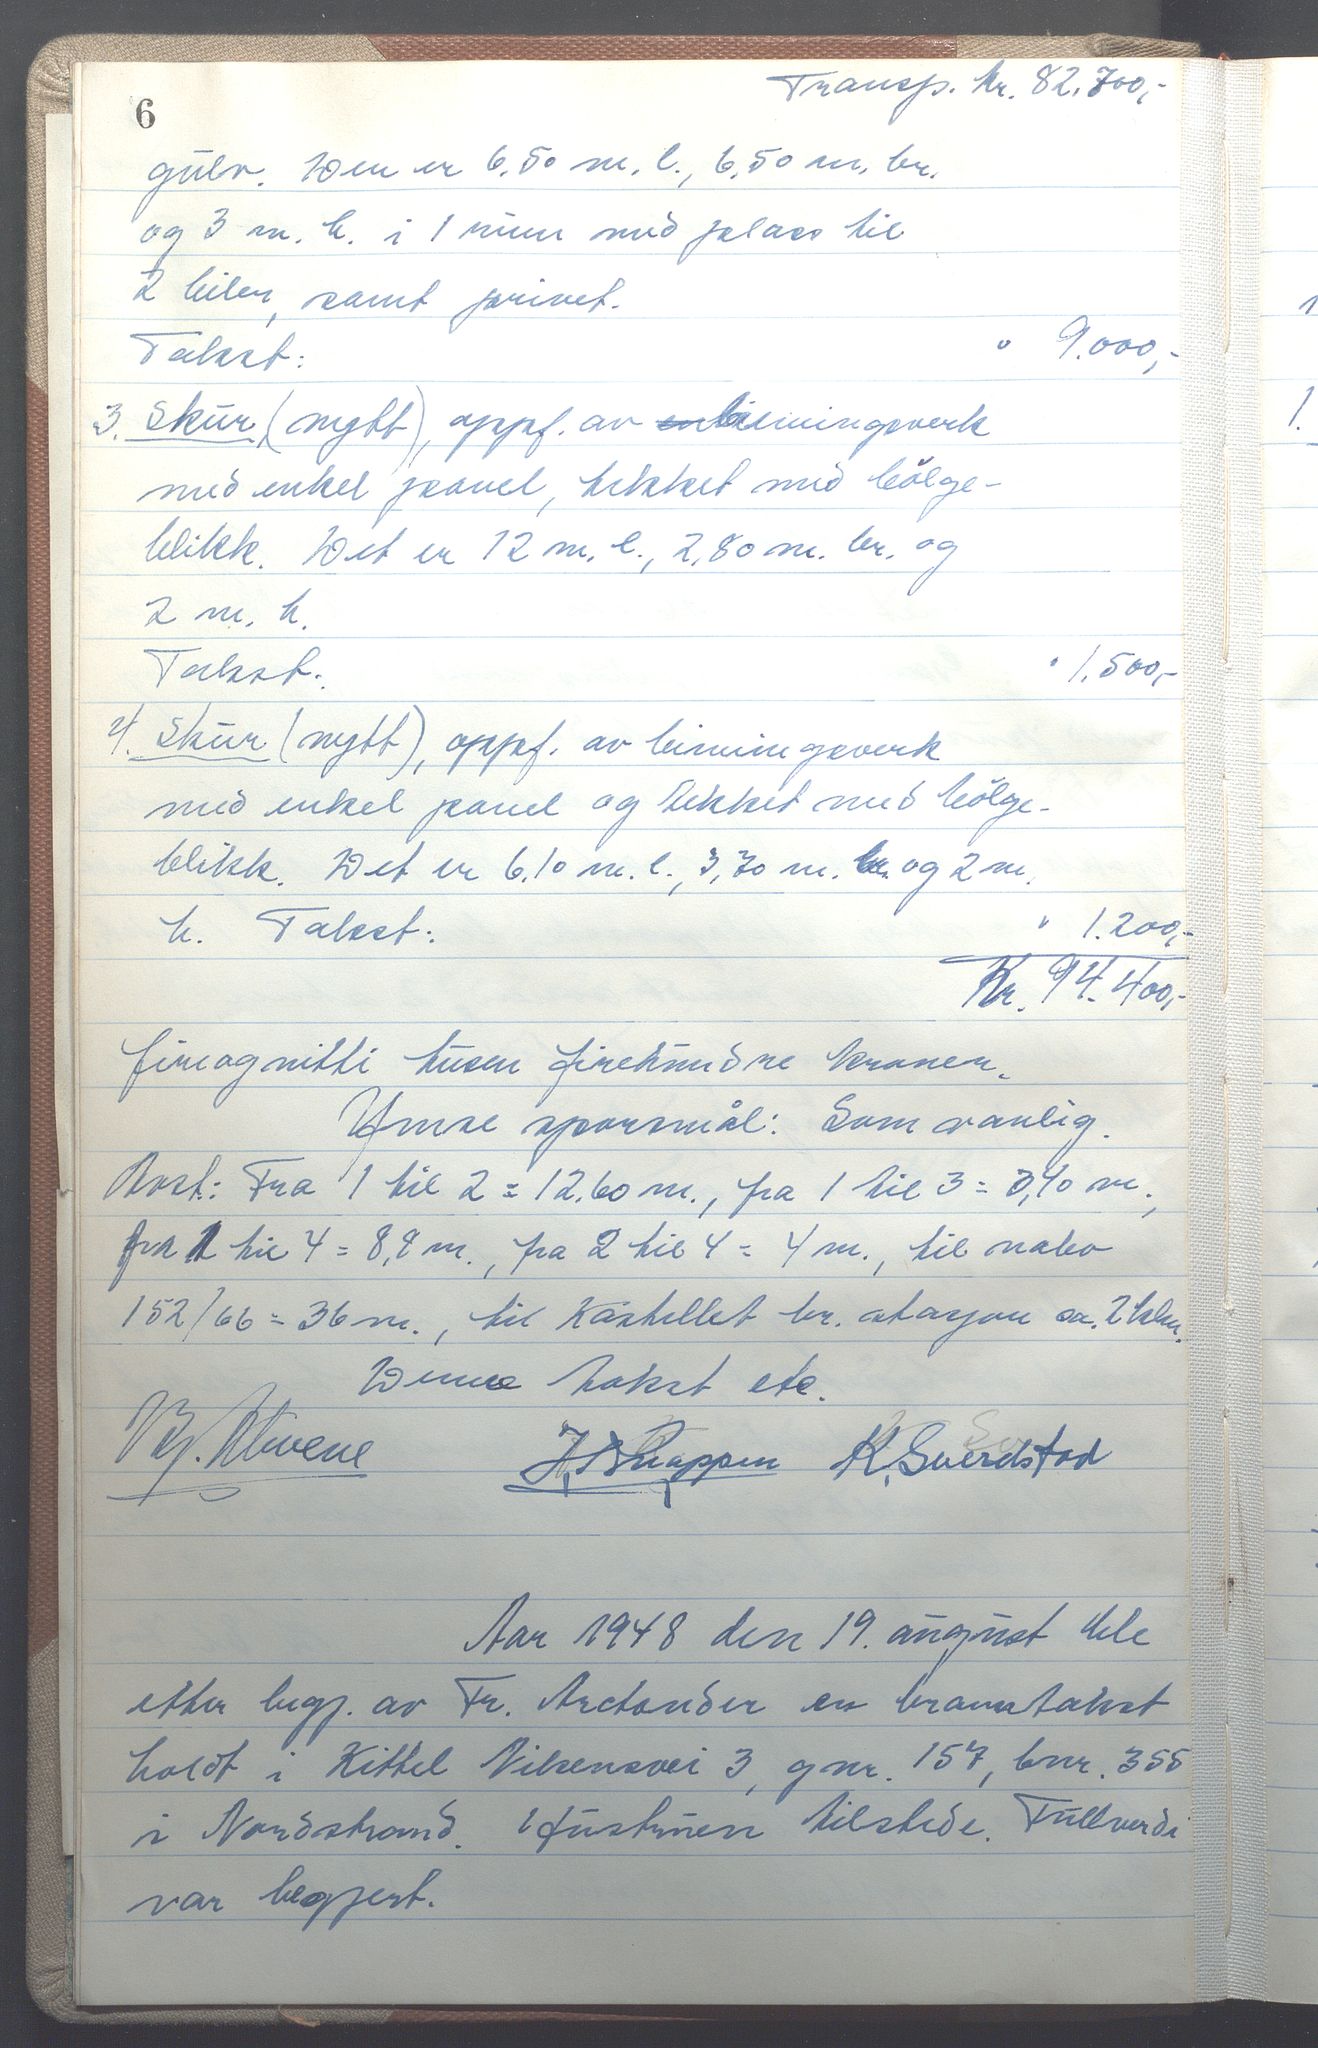 6
Transp. kr. 82.700,-
gulv. Den er 6.50 m. l., 6,50 m. br.
og 3 m. h. i 1 rum med plass til
2 biler, samt privet.
Takst: " 9.000,-
3. Skur (nytt), oppf. av bindingsverk
med enkel panel, tekket med bölge-
blikk. Det er 12 m. l., 2,80 m. br. og
2 m. h.
Takst: " 1.500,-
4. Skur (nytt), oppf. av binningsverk
med enkel panel og tekket med bölge-
blikk. Det er 6.10 m. l., 3,70 m. br. og 2 m.
h. Takst: " 1.200,-
Kr. 94.400,-
fireognitti tusen firehundre kroner.
Ymse spörsmål: Som vanlig.
Avst: Fra 1 til 2 = 12.60 m., fra 1 til 3 = 3,40 m.,
fra 1 til 4 = 8,8 m., fra 2 til 4 = 4 m., til nabo
152/66 = 36 m., til Kastellet br. stasjon ca. 2 klm.
Denne takst etc.
K. Sverdstad
Aar 1948 den 19. august ble
etter begj. av Fr. Arctander en branntakst
holdt i Kittel Nilsensvei 3, gnr. 157, bnr. 355
i Nordstrand. Hustruen tilstede. Fullverdi
var begjert.